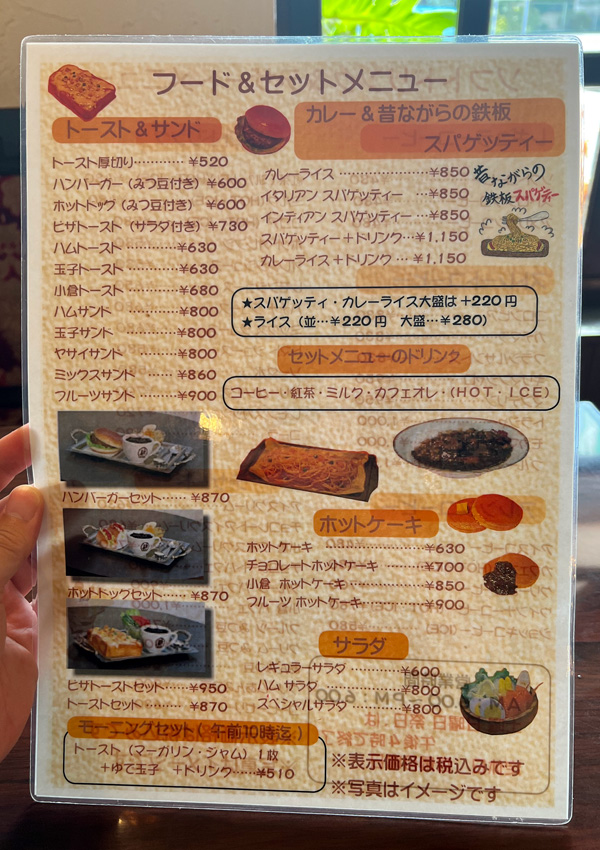 フード&セットメニュー
トースト&サンド
トースト厚切り………… ¥520
ハンバーガー(みつ豆付き) ¥600
ホットドッグ(みつ豆付き) ¥600
ピザトースト(サラダ付き) ¥730
ハムトースト …………¥630
玉子トースト …………¥630
小倉トースト …………¥680
ハムサンド …………¥800
玉子サンド …………¥800
ヤサイサンド …………¥800
ミックスサンド ………¥860
フルーツサンド ………¥900
カレー&昔ながらの鉄板
スパゲッティー
カレーライス ………………¥850
イタリアン スパゲッティー …¥850
インディアン スパゲッティー …¥850
スパゲッティー+ドリンク…¥1.150
カレーライス+ドリンク …¥1.150
昔ながらの
鉄板スパゲッティー
★スパゲッティ・カレーライス大盛は+220円
★ライス(並…¥220円 大盛…¥280)
セットメニューのドリンク
コーヒー・紅茶・ミルク・カフェオレ・(HOT・ICE)
ハンバーガーセット……¥870
ホットドックセット……¥870
ピザトーストセット……¥950
トーストセット………¥870
ホットケーキ
ホットケーキ …………………¥630
チョコレートホットケーキ ………¥700
小倉 ホットケーキ………………¥850
フルーツ ホットケーキ……………¥900
サラダ
レギュラーサラダ ……………¥600
ハム サラダ …………………¥800
スペシャルサラダ………………¥800
モーニングセット(午前10時迄)
トースト(マーガリン・ジャム)1枚
+ゆで玉子 +ドリンク……¥510
※表示価格は税込みです
※写真はイメージです